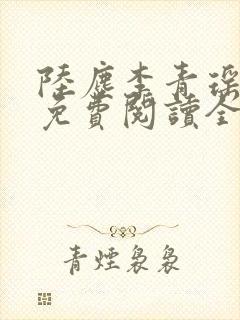 陸塵李青瑤
免費閱讀全
青煙裊裊